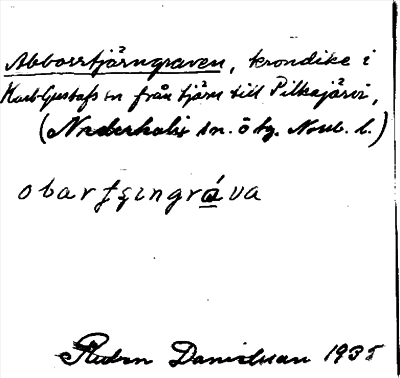 Abborrtjärngraven, krondike i
Karl-Gustafs sn från tjärn till Pilkajärvi,
(Nederkalix sn. ö kg. Norrb. l.)
obartɟęngráva
Ruben Danielsson 1935